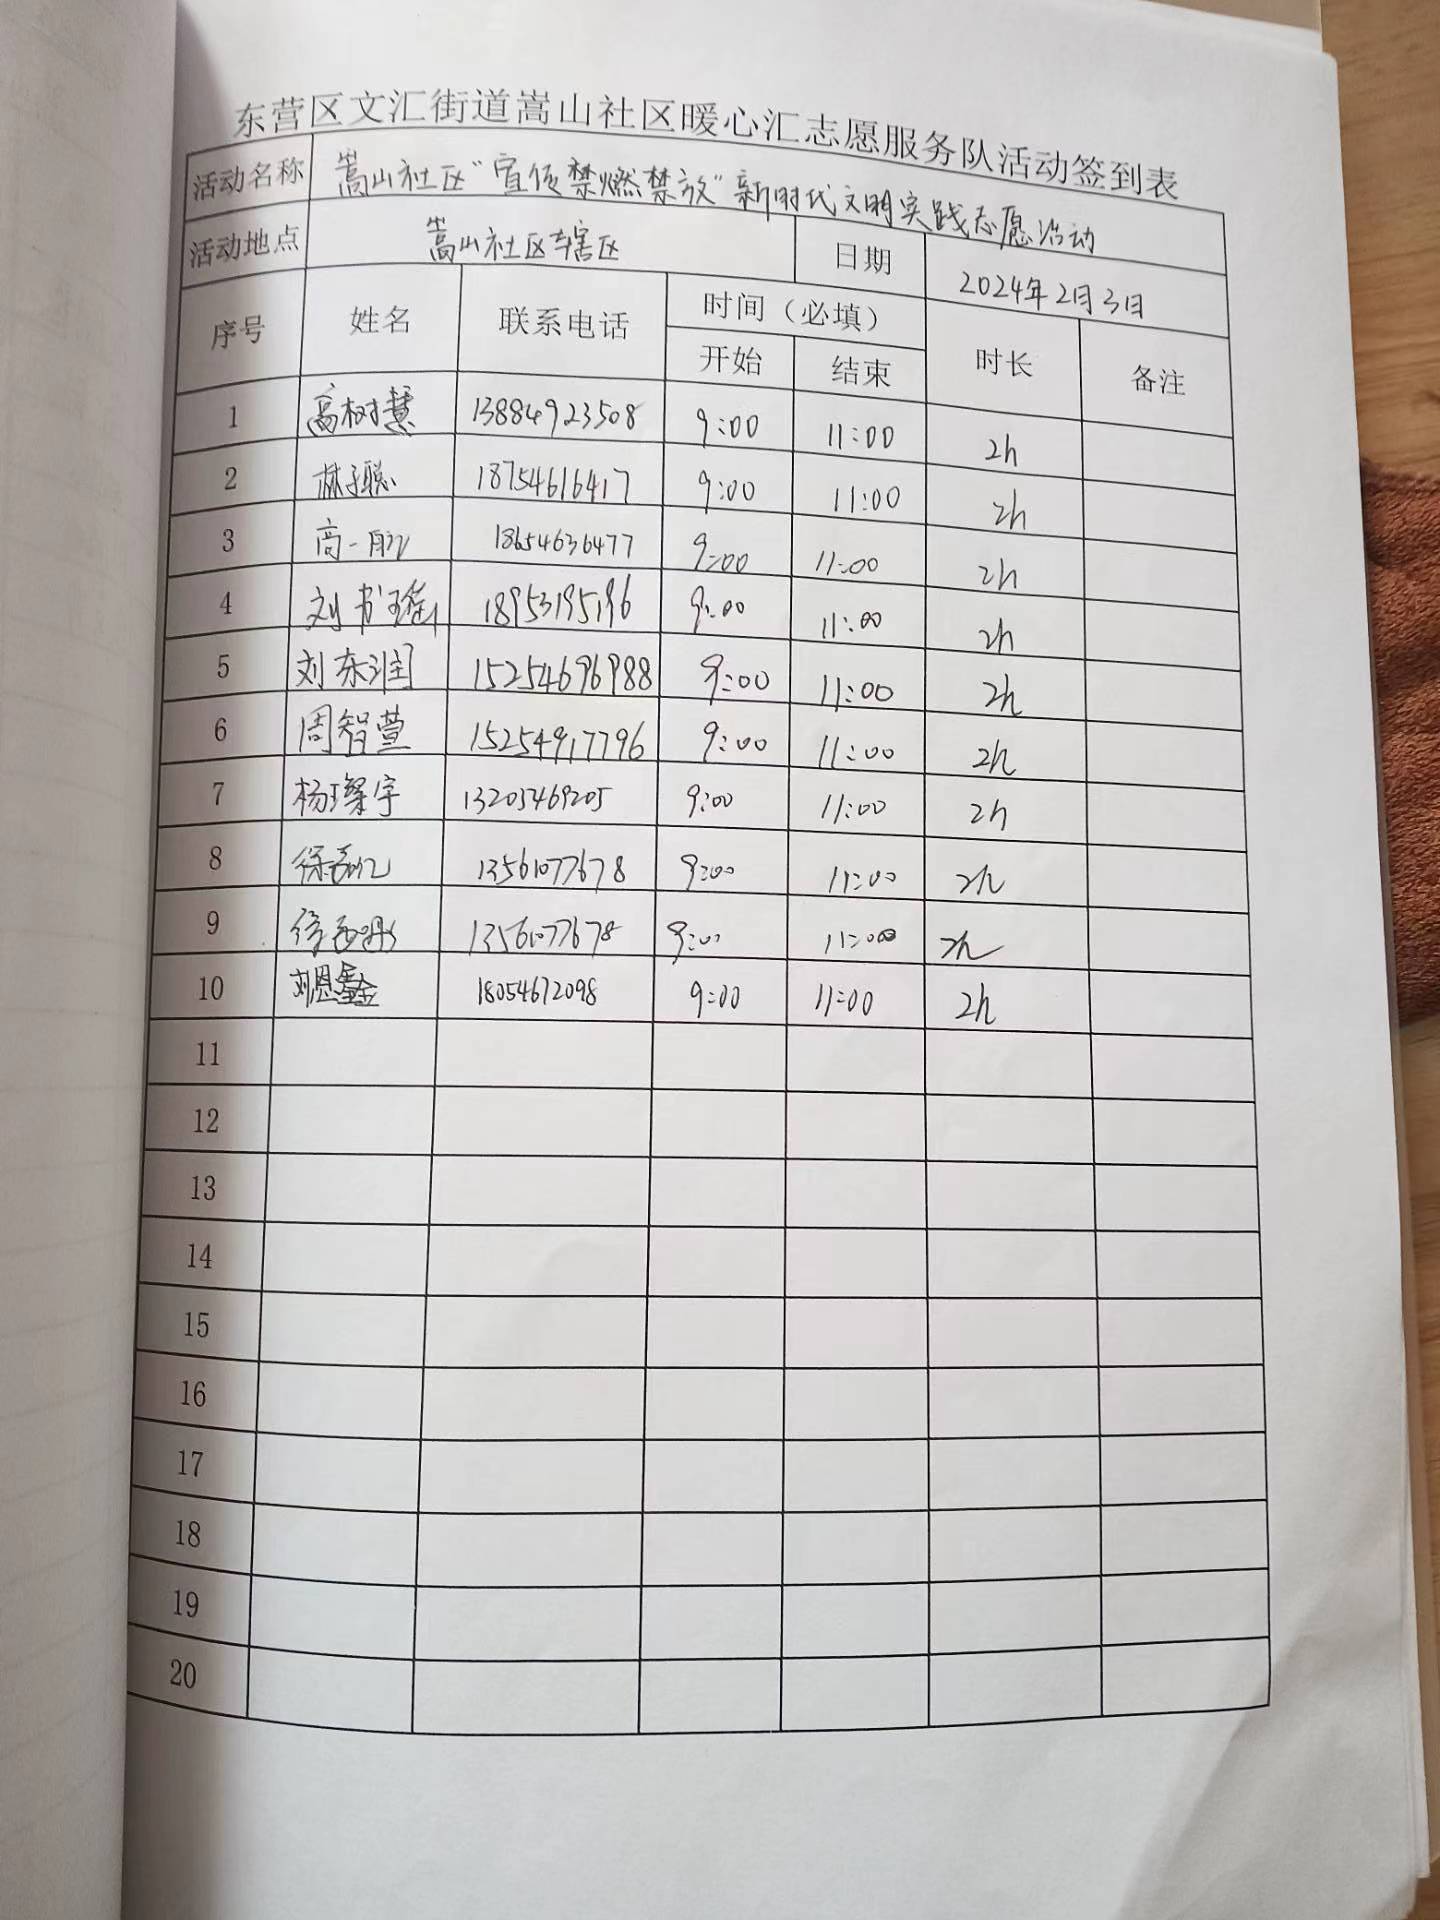 东营区文汇街道嵩山社区暖心汇志愿服务队活动签到表
活动名称 嵩山社区“宣传禁燃禁放”新时代文明实践志愿活动
活动地点 嵩山社区辖区 日期 2024年2月3日
序号 姓名 联系电话 时间（必填） 时长 备注
开始 结束
1 高树慧 13884923508 9:00 11:00 2h
2 林子聪 18754616417 9:00 11:00 2h
3 高一 18654636477 9:00 11:00 2h
4 刘书瑶 18953195196 9:00 11:00 2h
5 刘东润 15254696988 9:00 11:00 2h
6 周智萱 15254917796 9:00 11:00 2h
7 杨璨宇 13205469205 9:00 11:00 2h
8 徐 13561077678 9:00 11:00 2h
9 徐 13561077678 9:00 11:00 2h
10 刘恩 18054672098 9:00 11:00 2h
11
12
13
14
15
16
17
18
19
20